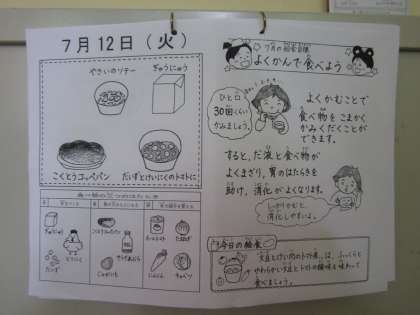 7月12日（火）
やさいのソテー
ぎゅうにゅう
こくとうコッペパン
だいずとけいにくのトマトに
7月の給食目標
よくかんで食べよう
ひと口
30回くらい
かみましょう。
よくかむことで
食べ物をこまかく
かみくだくことが
できます。
すると、だ液と食べ物が
よくまざり、胃のはたらきを
助け、消化がよくなります。
しっかりかむと、
消化しやすいよ。
今日の給食
「大豆とけい肉のトマト煮」は、ふっくらと
やわらかい大豆とトマトの酸味を味わって
食べましょう。
ぎゅうにゅう
だいず
とりにく
コッペパン
じゃがいも
にんじん
たまねぎ
キャベツ